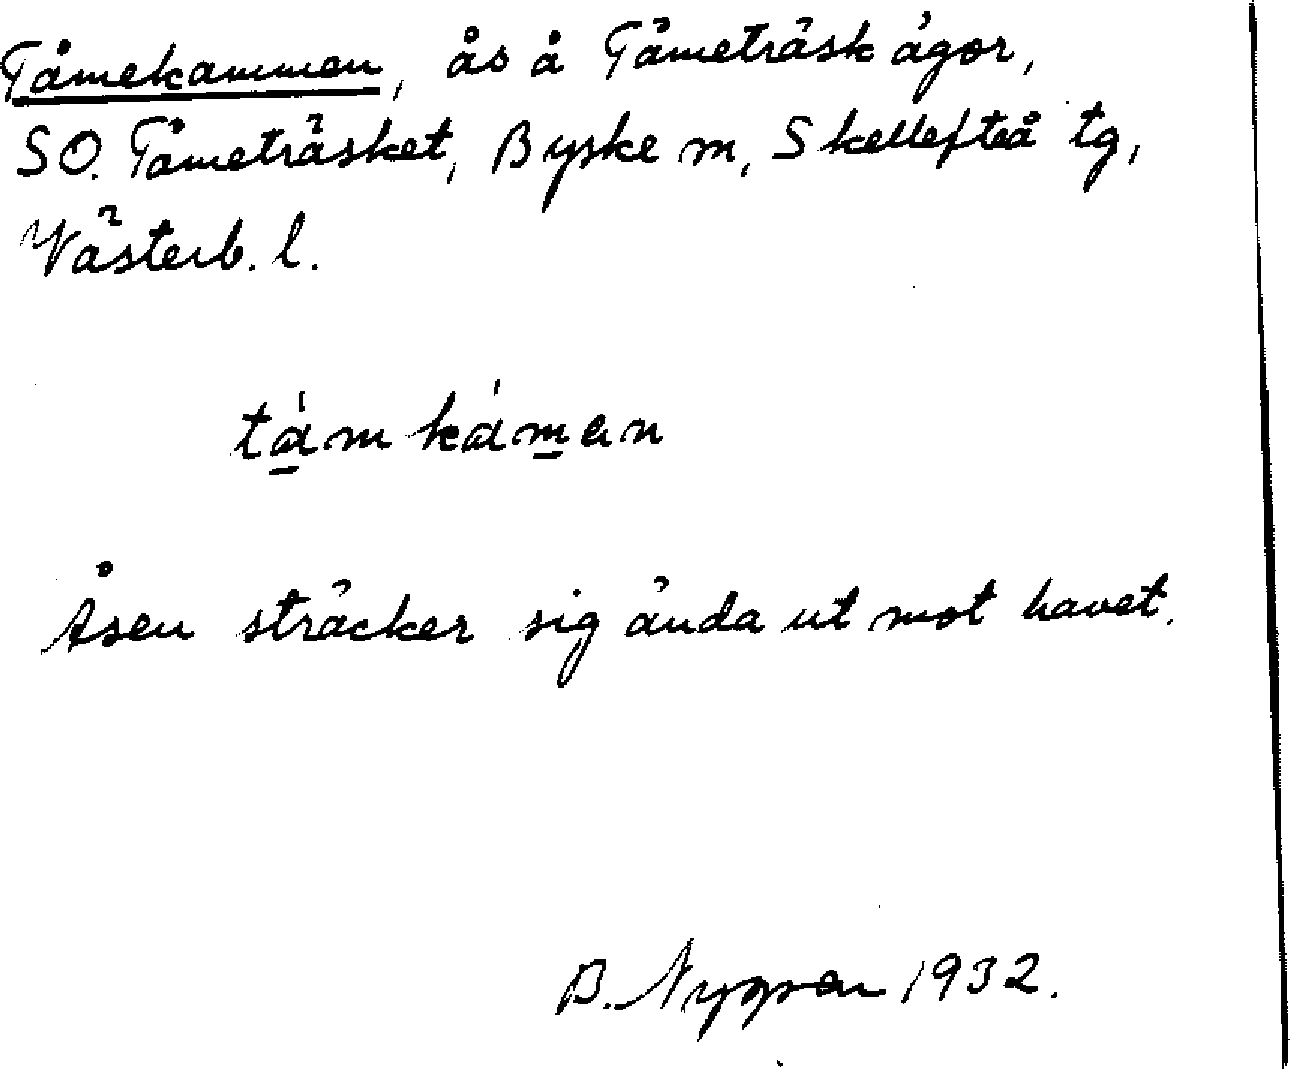 Tåmekammen, ås å Tåmeträsk ägor,
SO. Tåmeträsket, Byske m, Skellefteå tg,
Västerb. l.
tá̱m kám̱en
Åsen sträcker sig ända ut mot havet.
B. Nygren 1932.